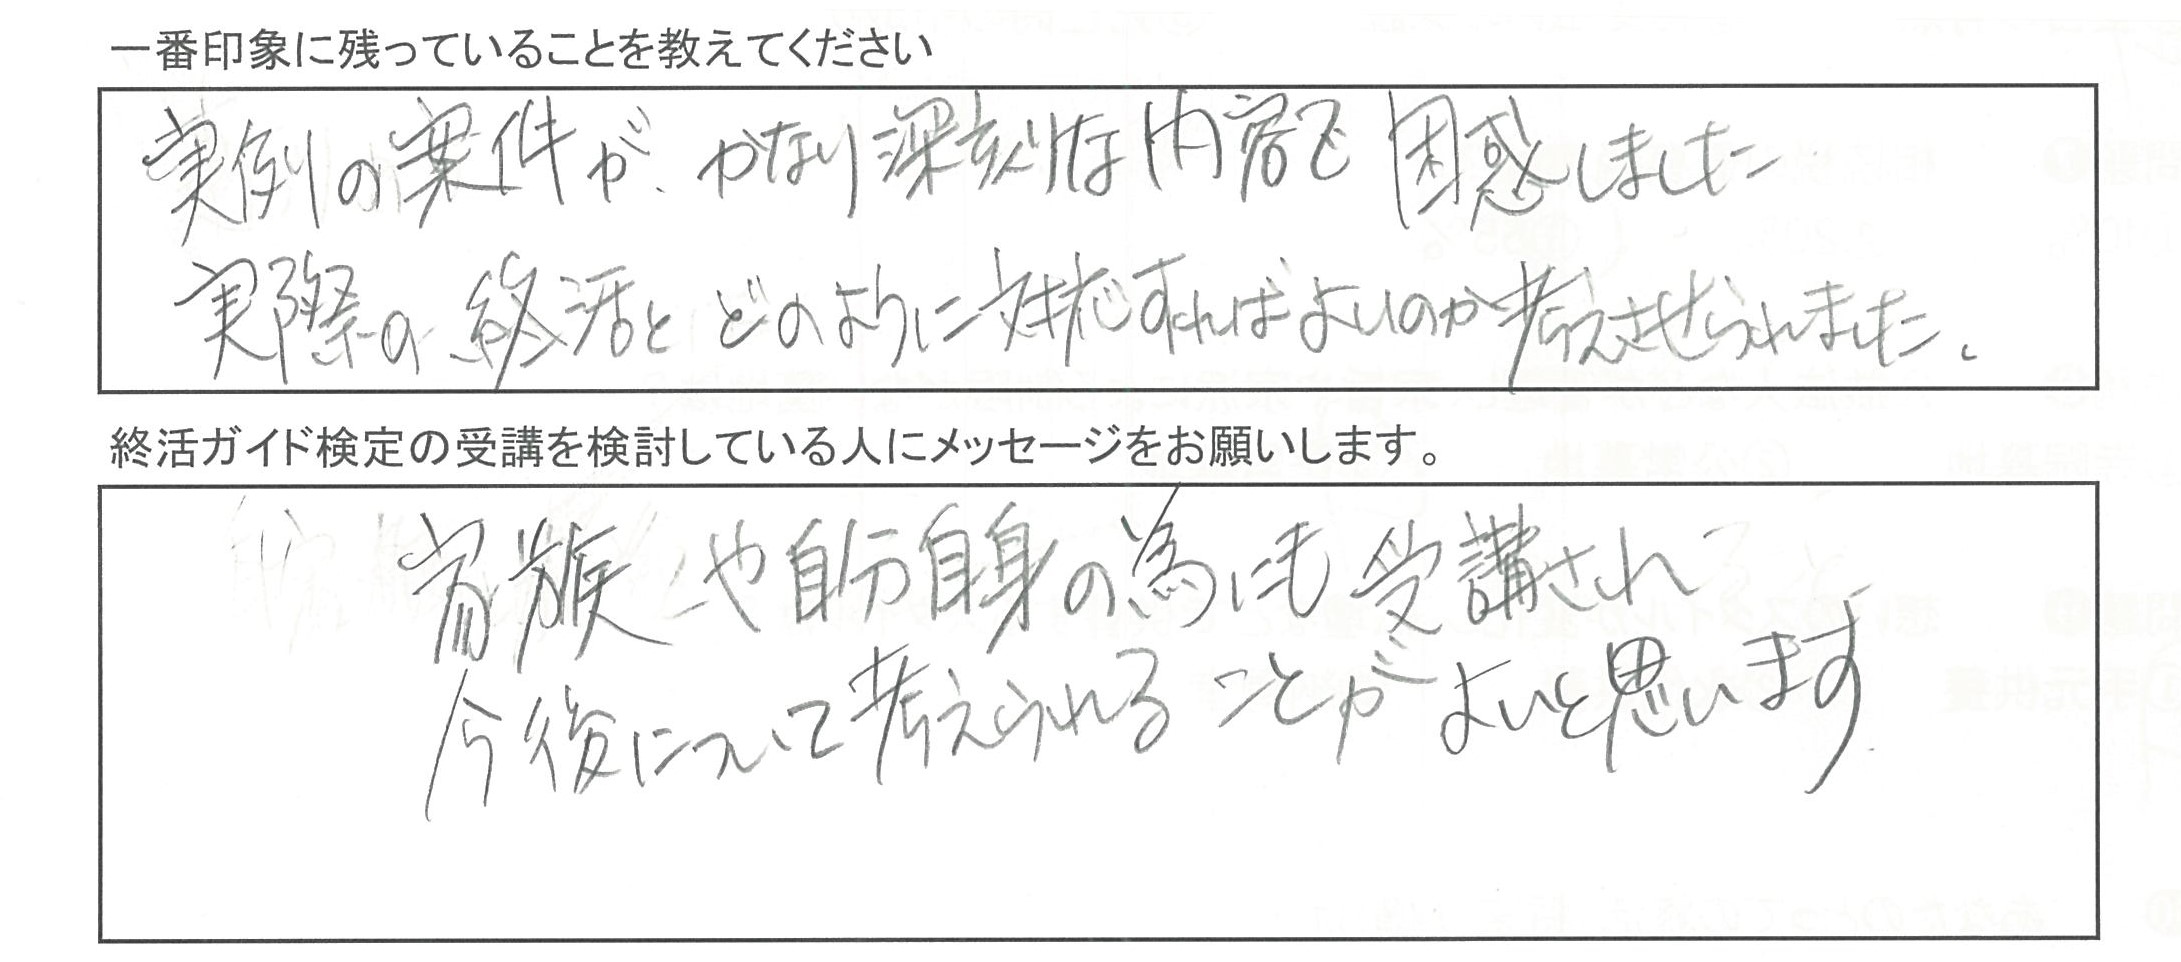 一番印象に残っていることを教えてください
実例の案件が、かなり深刻な内容で困惑しました
実際の終活とどのように対応すればよいのか考えさせられました。
終活ガイド検定の受講を検討している人にメッセージをお願いします。
家族や自分自身の為にも受講され
今後について考えられることがよいと思います